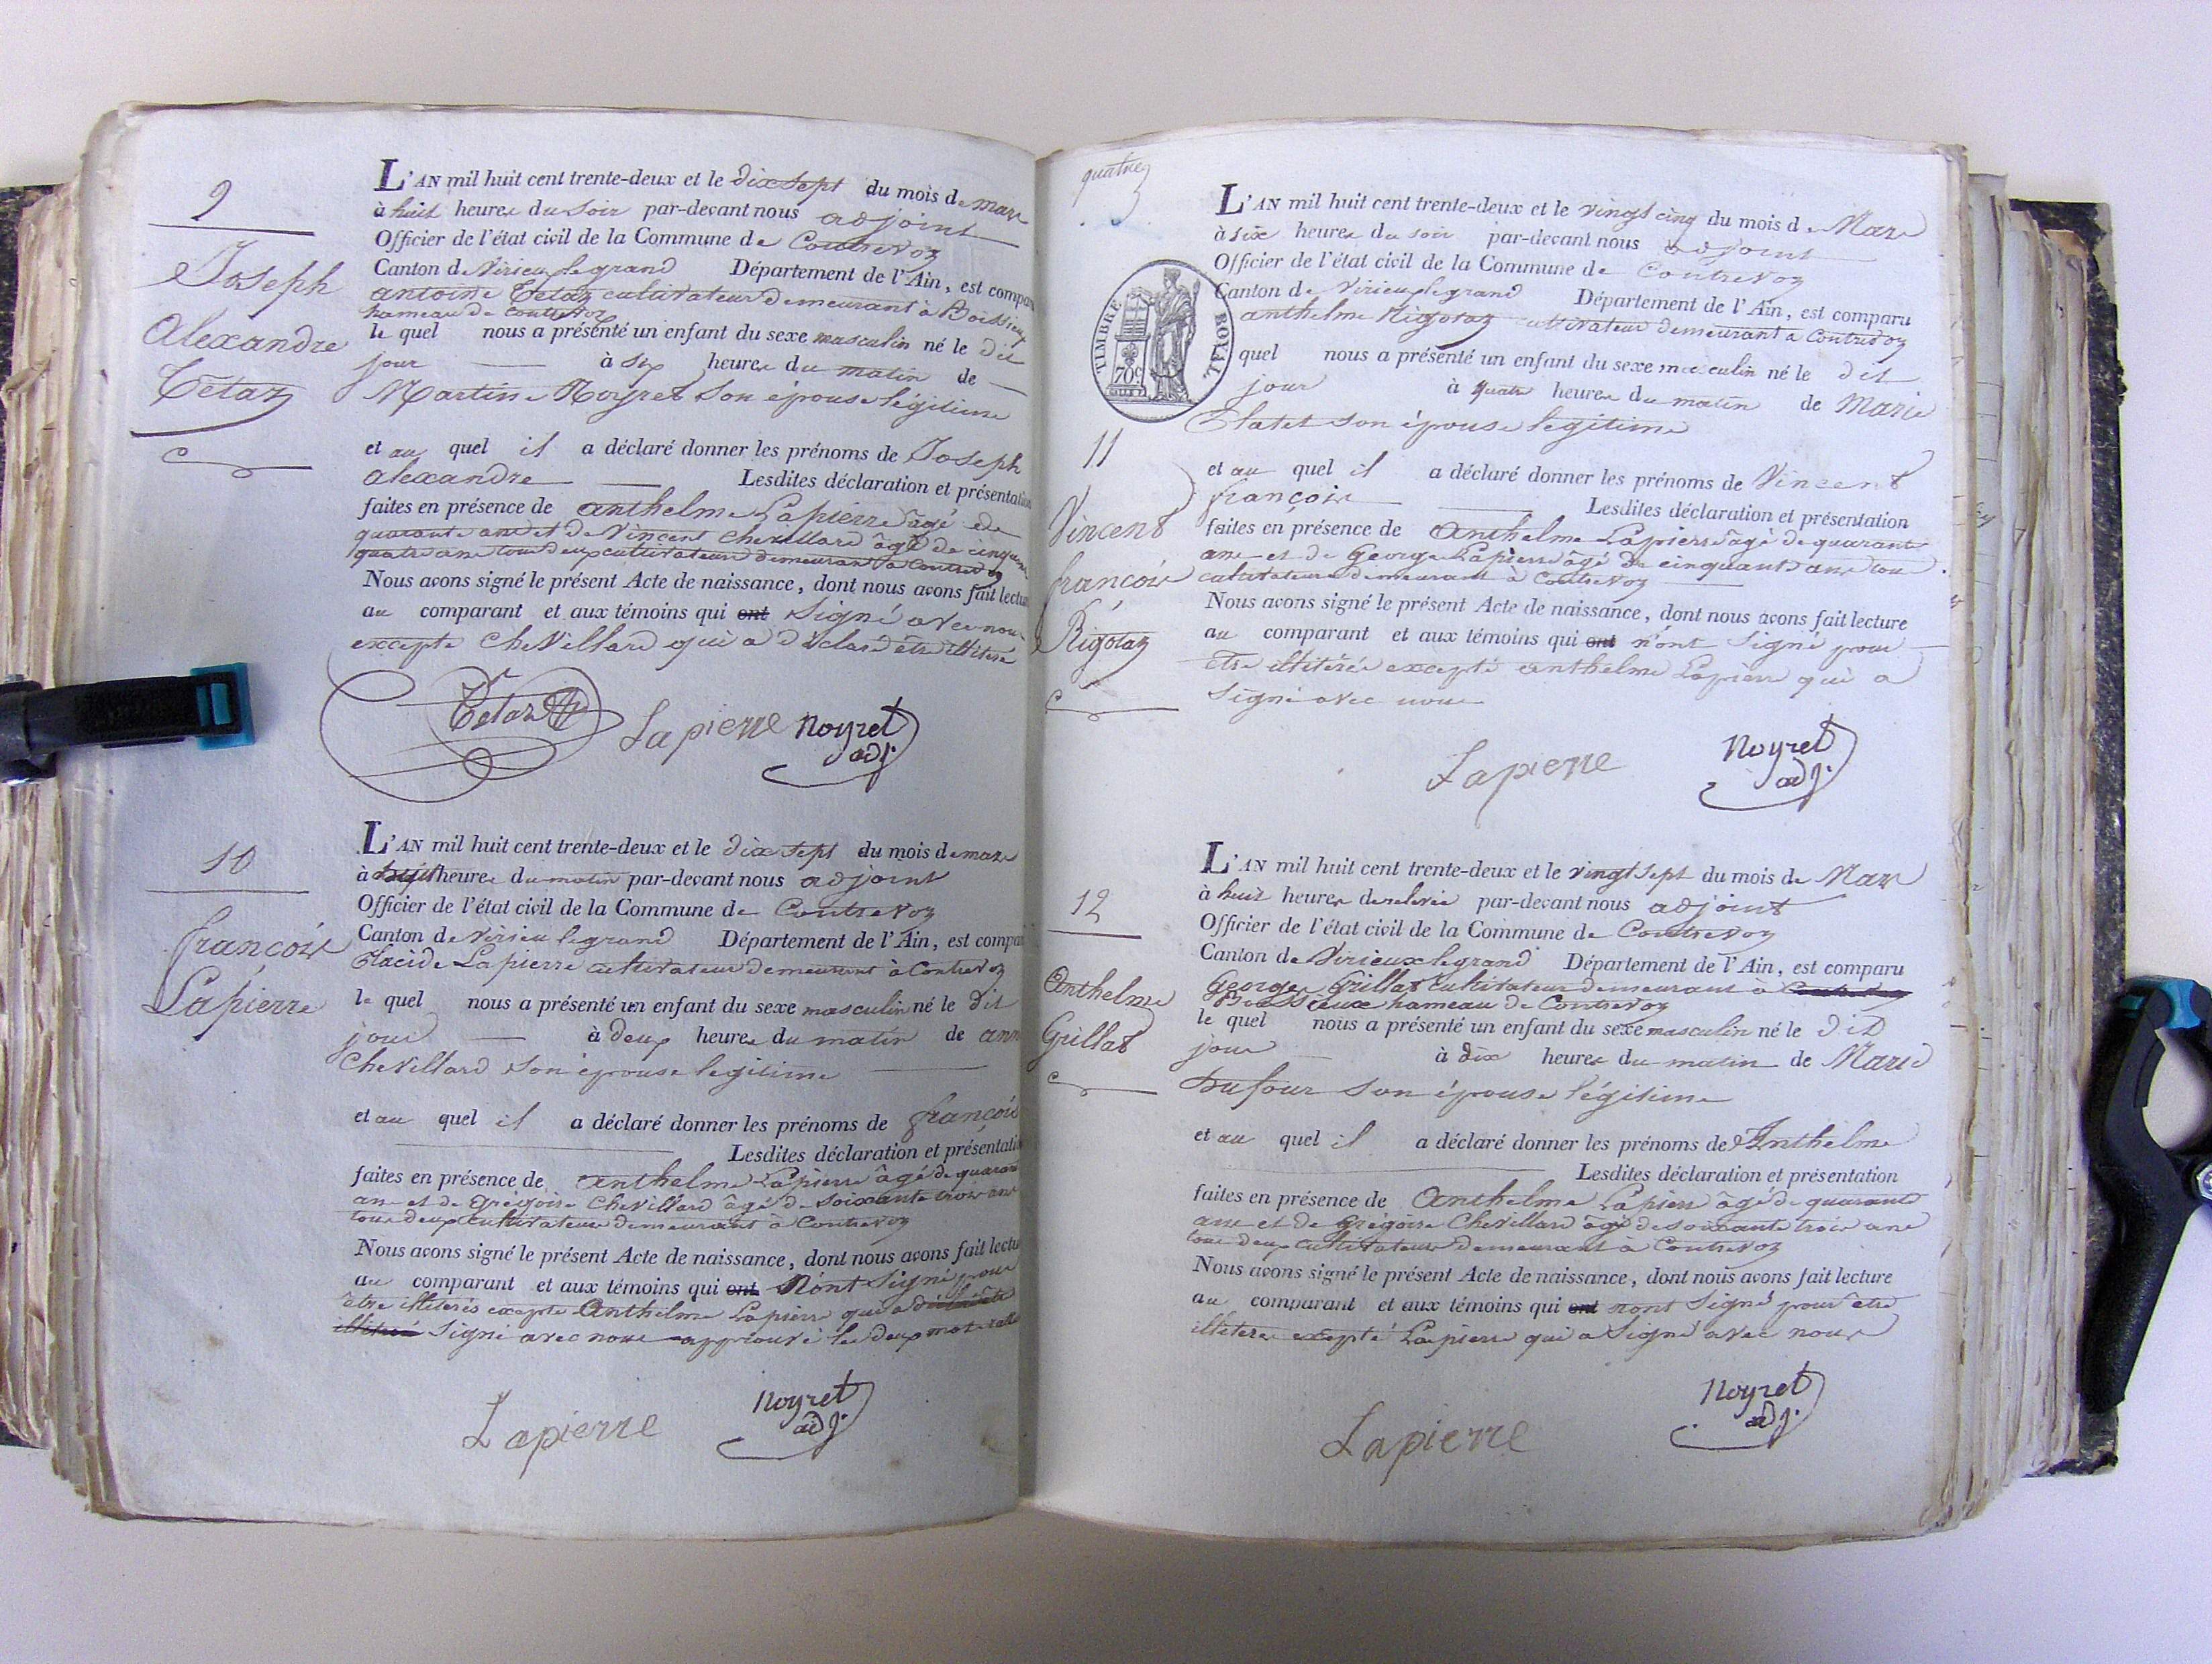 9
Joseph
Alexandre
Tétaz
L'AN mil huit cent trente-deux et le dix sept du mois de mars
à huit heures du soir par-devant nous adjoint
Officier de l'état civil de la Commune de Contrevoz
Canton de Virieu le grand Département de l'Ain, est compar
antoine Tétaz cultivateur demeurant à Boissieu
hameau de Contrevoz
le quel nous a présenté un enfant du sexe masculin né le dit
jour à six heures du matin de
Martine Noyret son épouse légitime
et au quel il a déclaré donner les prénoms de Joseph
alexandre Lesdites déclaration et présentation
faites en présence de anthelme Lapierre âgé de
quarante ans et de Vincent Chevillard âgé de cinquante
quatre ans tous deux cultivateurs demeurant à Contrevoz
Nous avons signé le présent Acte de naissance, dont nous avons fait lectu
au comparant et aux témoins qui ont signé avec nous
excepté Chevillard qui a déclaré être illitéré
Tétaz Lapierre Noyret
adj.
10
françois
Lapierre
L'AN mil huit cent trente-deux et le dix sept du mois de mars
à heures du matin par-devant nous adjoint
Officier de l'état civil de la Commune de Contrevoz
Canton de Virieu le grand Département de l'Ain, est compar
Placide Lapierre cultivateur demeurant à Contrevoz
le quel nous a présenté un enfant du sexe masculin né le dit
jour à deux heures du matin de ann
Chevillard son épouse légitime
et au quel il a déclaré donner les prénoms de françois
Lesdites déclaration et présentatio
faites en présence de anthelme Lapierre âgé de quarant
ans et de grégoire Chevillard âgé de soixante trois ans
tous deux cultivateurs demeurant à Contrevoz
Nous avons signé le présent Acte de naissance, dont nous avons fait lectu
au comparant et aux témoins qui ont n'ont signé pour
être illiterés excepté Anthelme Lapierre qui a
illitéré signé avec nous approuvé les deux mots
Lapierre Noyret
adj.
quatre
TIMBRE ROYAL
70c
11
Vincent
françois
Rigotaz
L'AN mil huit cent trente-deux et le vingt cinq du mois de Mars
à six heures du soir par-devant nous adjoint
Officier de l'état civil de la Commune de Contrevoz
Canton de Virieu le grand Département de l'Ain, est comparu
anthelme Rigotaz cultivateur demeurant à Contrevoz
quel nous a présenté un enfant du sexe masculin né le dit
jour à quatre heures du matin de Marie
Platet son épouse légitime
et au quel il a déclaré donner les prénoms de Vincent
françois Lesdites déclaration et présentation
faites en présence de Anthelme Lapierre âgé de quarante
ans et de George Lapierre âgé de cinquante ans tous
cultivateurs demeurant à Contrevoz
Nous avons signé le présent Acte de naissance, dont nous avons fait lecture
au comparant et aux témoins qui ont n'ont signé pour
être illitérés excepté anthelme Lapierre qui a
signé avec nous
Lapierre Noyret
adj.
12
Anthelme
Grillat
L'AN mil huit cent trente-deux et le vingt sept du mois de Mars
à huit heures de relevée par-devant nous adjoint
Officier de l'état civil de la Commune de Contrevoz
Canton de Virieux le grand Département de l'Ain, est comparu
George Grillat cultivateur demeurant à Contrevoz
Boissieux hameau de Contrevoz
le quel nous a présenté un enfant du sexe masculin né le dit
jour à dix heures du matin de Marie
Dufour son épouse légitime
et au quel il a déclaré donner les prénoms de Anthelme
Lesdites déclaration et présentation
faites en présence de Anthelme Lapierre âgé de quarante
ans et de grégoire Chevillard âgé de soixante trois ans
tous deux cultivateurs demeurant à Contrevoz
Nous avons signé le présent Acte de naissance, dont nous avons fait lecture
au comparant et aux témoins qui ont n'ont signé pour être
illiteres excepté Lapierre qui a signé avec nous
Lapierre Noyret
adj.